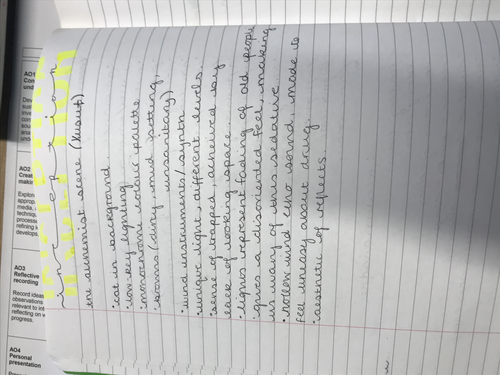 AO1
AO2
Explore
media,
refining
develops.
AO3
Reflective
recording
Record ideas
observations
relevant to
reflecting on
progress.
AO4
Personal
presentation
inception
the alchemist scene (yusuf)
•cat in background
•low-key lighting
•monochrome colour palette
(dirty, mud setting,
unsanitary)
•wind instruments/synth
•unique light - different levels.
•sense of trapped, achieved by
lack of looking space.
•lights represent fading of old people
•gives a disoriented feel, making
us wary of this sedative
•hollow wind echo sound, made to
feel uneasy about drug.
•aesthetic of reflects.